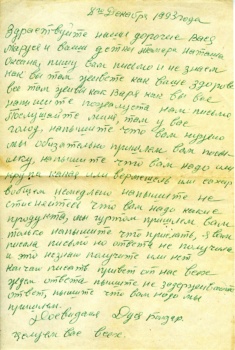 8го Декабря 1993 года
Здравствуйте наши дорогие Вася
Маруся и Ваши детки Тамара Наташа
Оксана, пишу Вам письмо и не знаем
как вы там живёте как ваше здоровье
все там живы как Варя как вы все
напишите пожалуста нам письмо
Послушайте меня, там у вас
голод, напишите что вам нужно
мы обязательно пришлем вам посы-
лку, напишите что вам надо или
крупа какая или вермешель или сахар
вобщем немедлено напишыте не
стисняйтесь что вам надо какие
продукты, мы гуртом пришлем вам
только напишыте что прислать, я вам
писала письмо но ответа не получила
и не знаю получили или нет.
кончаю писать привет от нас всех
ждем ответа пишыте не задерживайте
ответ, пишыте что вам надо мы
пришлем.
Досвидания
целуем вас всех.